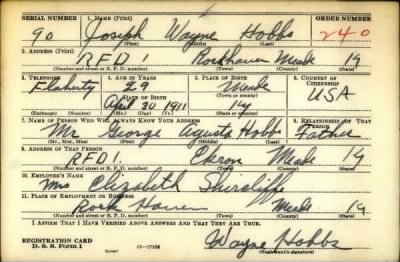 SERIAL NUMBER 1. NAME (Print) ORDER NUMBER
90 Joseph Wayne Hobbs 240
(First) (Middle) (Last)
2. ADDRESS (Print)
RFD Rockhaven Meade Ky
(Number and street or R. F. D. number) (Town) (County) (State)
3. TELEPHONE 4. AGE IN YEARS 5. PLACE OF BIRTH 6. COUNTRY OF CITIZENSHIP
Flaherty 29 Meade
DATE OF BIRTH (Town or county) USA
April 30 1911 Ky
(Exchange) (Number) (Mo.) (Day) (Yr.) (State or country)
7. NAME OF PERSON WHO WILL ALWAYS KNOW YOUR ADDRESS 8. RELATIONSHIP OF THAT PERSON
Mr George Hobbs Father
(Mr., Mrs., Miss) (First) (Middle) (Last)
9. ADDRESS OF THAT PERSON
RFD 1. Ekron Meade Ky
(Number and street or R. F. D. number) (Town) (County) (State)
10. EMPLOYER'S NAME
Mrs Elizabeth
11. PLACE OF EMPLOYMENT OR BUSINESS
Rock Haven Meade Ky
(Number and street or R. F. D. number) (Town) (County) (State)
I AFFIRM THAT I HAVE VERIFIED ABOVE ANSWERS AND THAT THEY ARE TRUE.
REGISTRATION CARD
D. S. S. Form 1 Wayne Hobbs
(Registrant's signature)